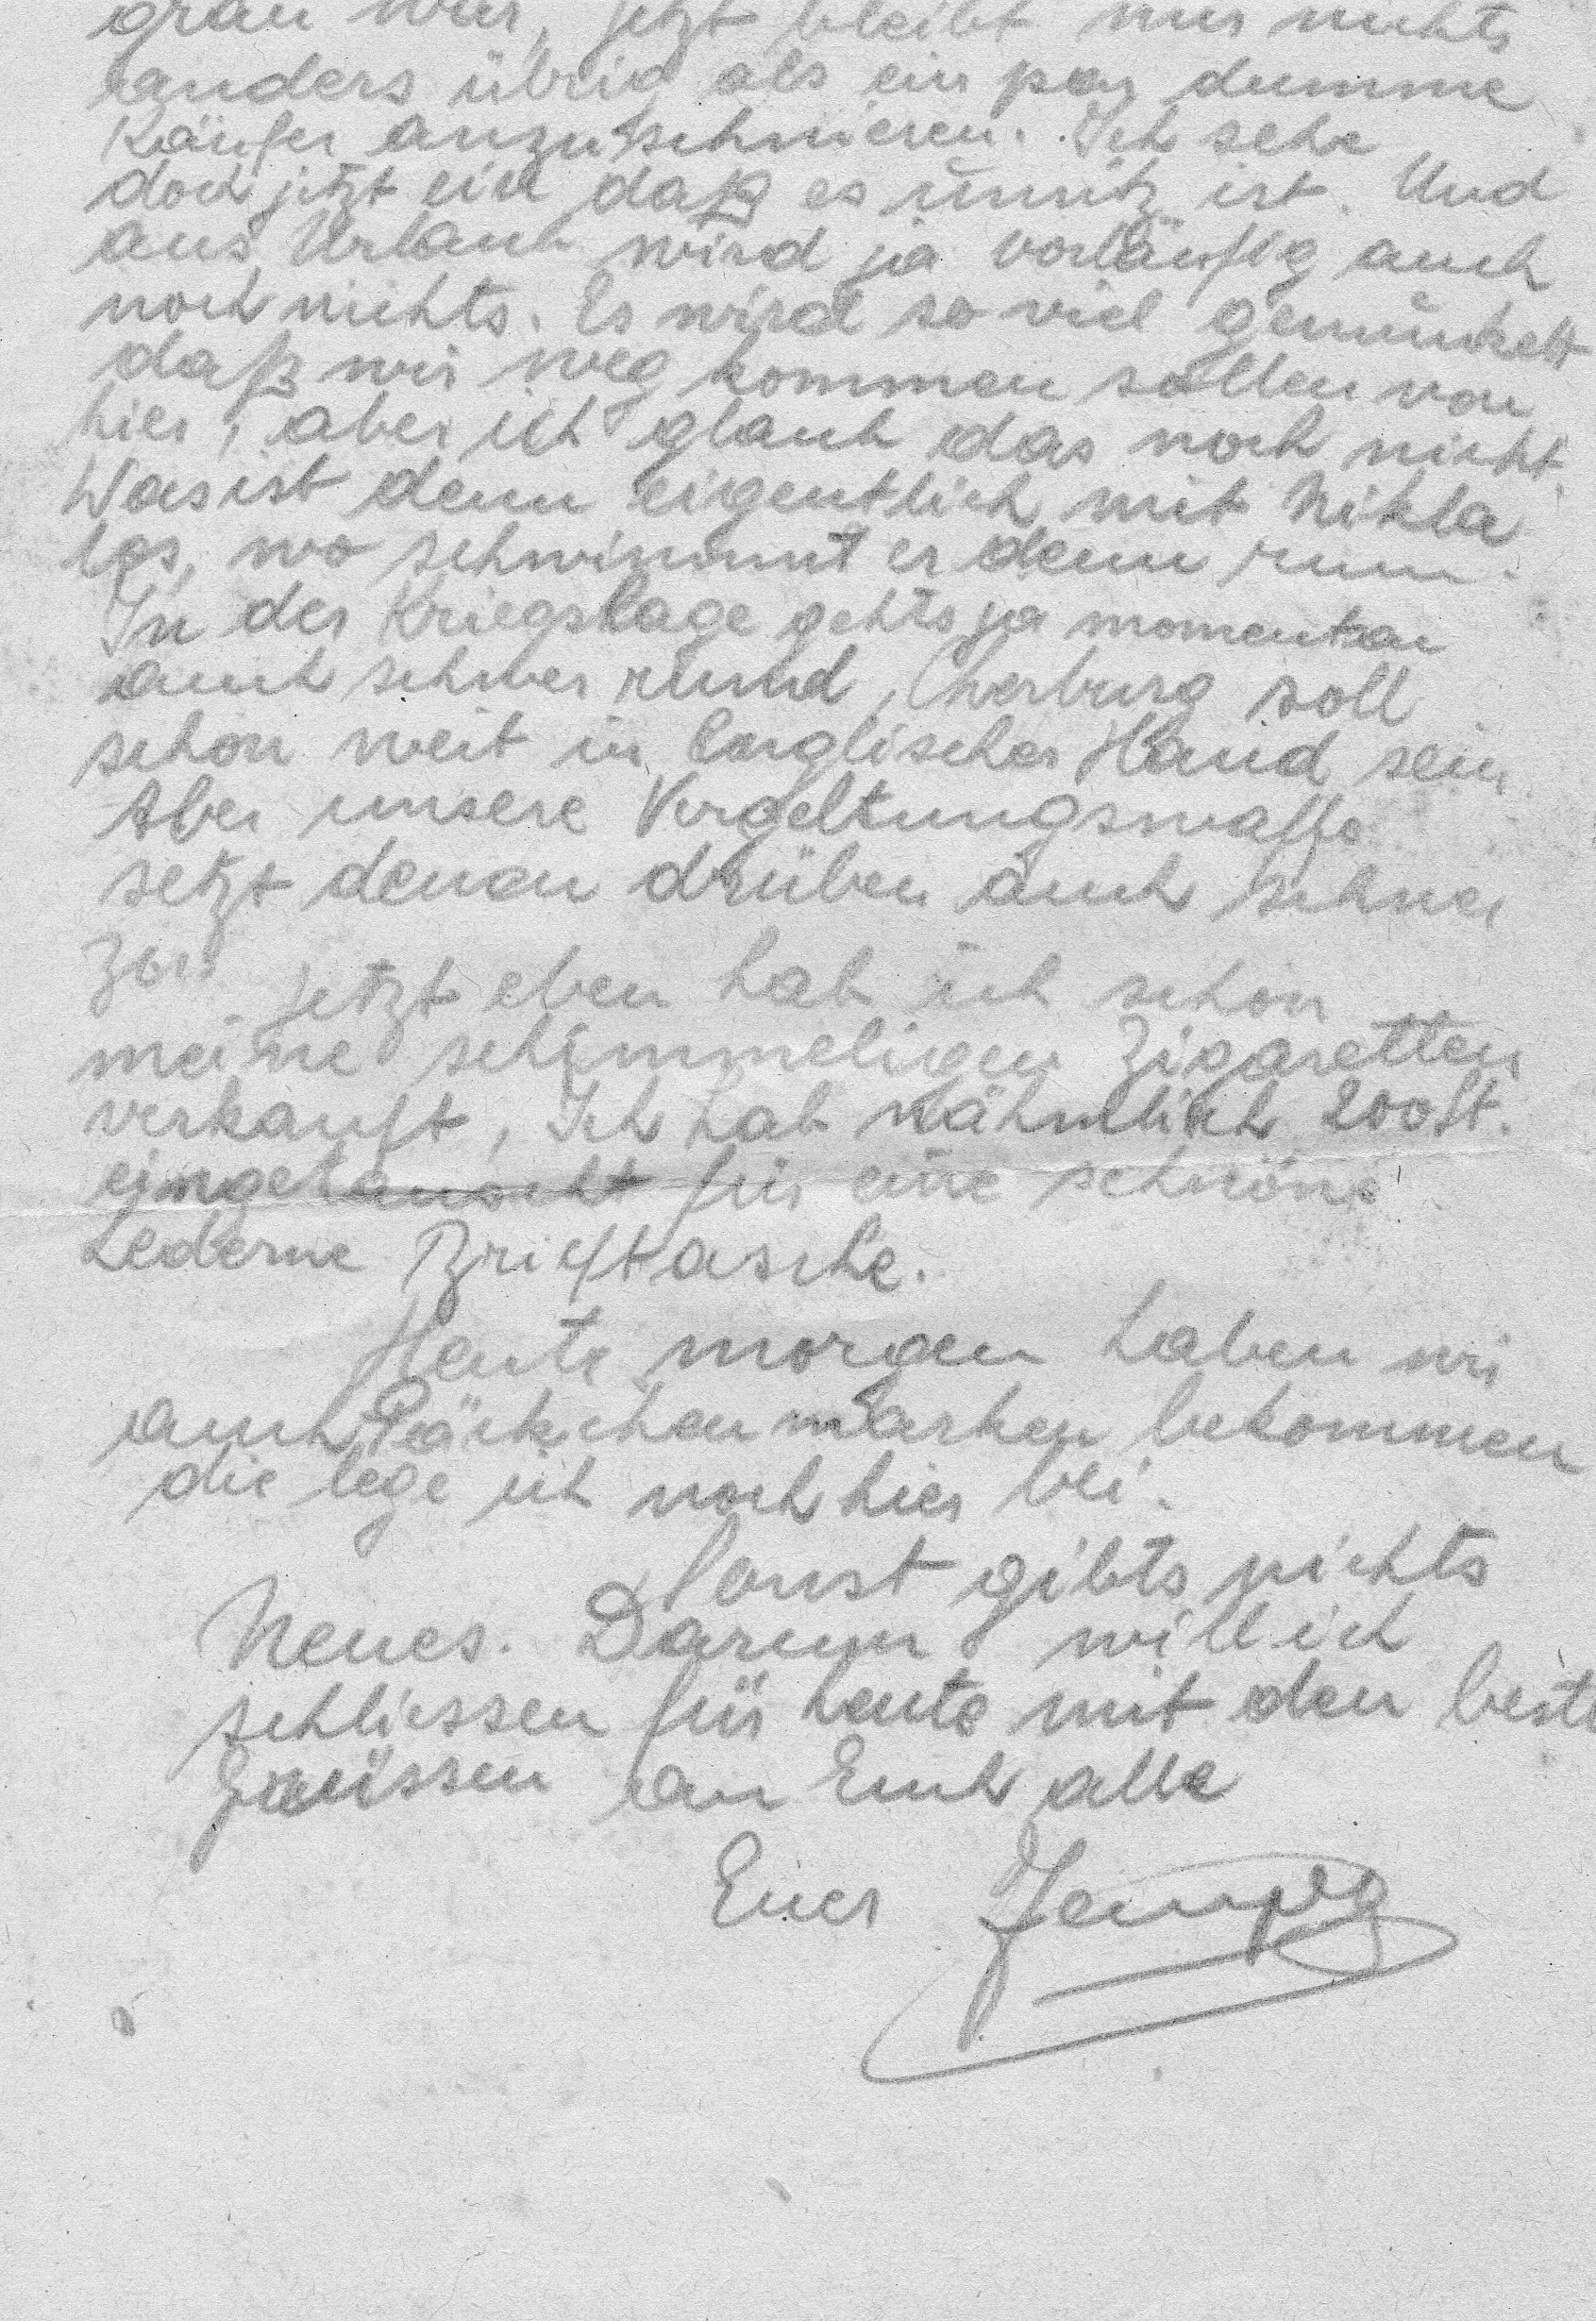 grau war, jetzt bleibt mir nichts
anders übrig als ein par dumme
Käufer anzuschmieren. Ich sehe
doch jetzt ein daß es unnütz ist. Und
aus Urlaub wird ja vorläufig auch
noch nichts. Es wird so viel gemunkelt
daß wir weg kommen sollen von
hier, aber ich glaub das noch nicht.
Was ist denn eigentlich mit Nikla
los, wo schwimmt er denn rum.
In der Kriegslage gehts ja momentan
auch schwer rund, Cherburg soll
schon weit in Englischer Hand sein
Aber unsere Vergeltungswaffe
setzt denen drüben auch schwer
zu. Jetzt eben hab ich schon
meine schimmeligen Zigaretten
verkauft, Ich hab nähmlich 200 St.
eingetauscht für eine schöne
Lederne Brieftasche.
Heute morgen haben wir
auch Päckchen marken bekommen
die lege ich noch hier bei.
Sonst gibts nichts
Neues. Darum will ich
schliessen für heute mit den best
Grüssen an Euch alle
Euer